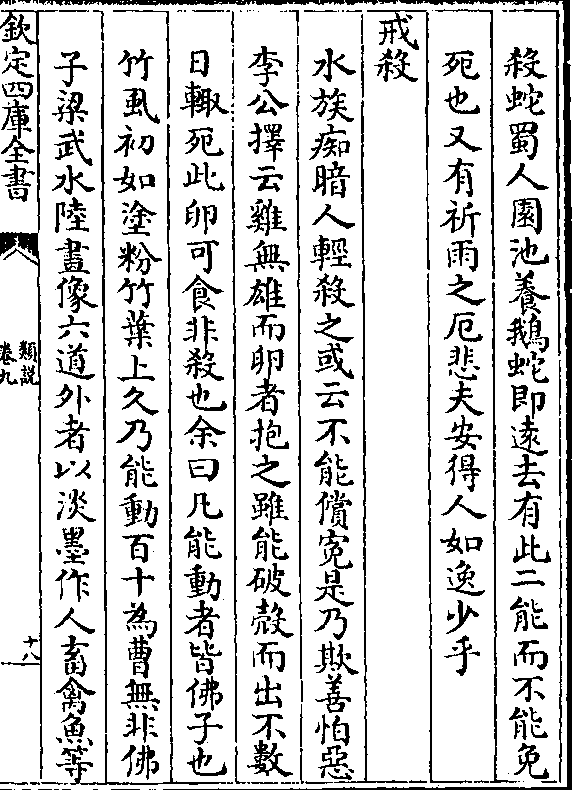 殺蛇蜀人園池養鵝蛇即遠去有此二能而不能免
死也又有祈雨之厄悲夫安得人如逸少乎
戒殺
水族痴暗人輕殺之或云不能償寃是乃欺善怕惡
李公擇云雞無雄而卵者抱之雖能破殼而出不數
日輙死此卵可食非殺也余曰凡能動者皆佛子也
竹虱初如塗粉竹葉上久乃能動百十為曹無非佛
子梁武水陸畫像六道外者以淡墨作人畜禽魚等
欽定四庫全書
類説
卷九
十八